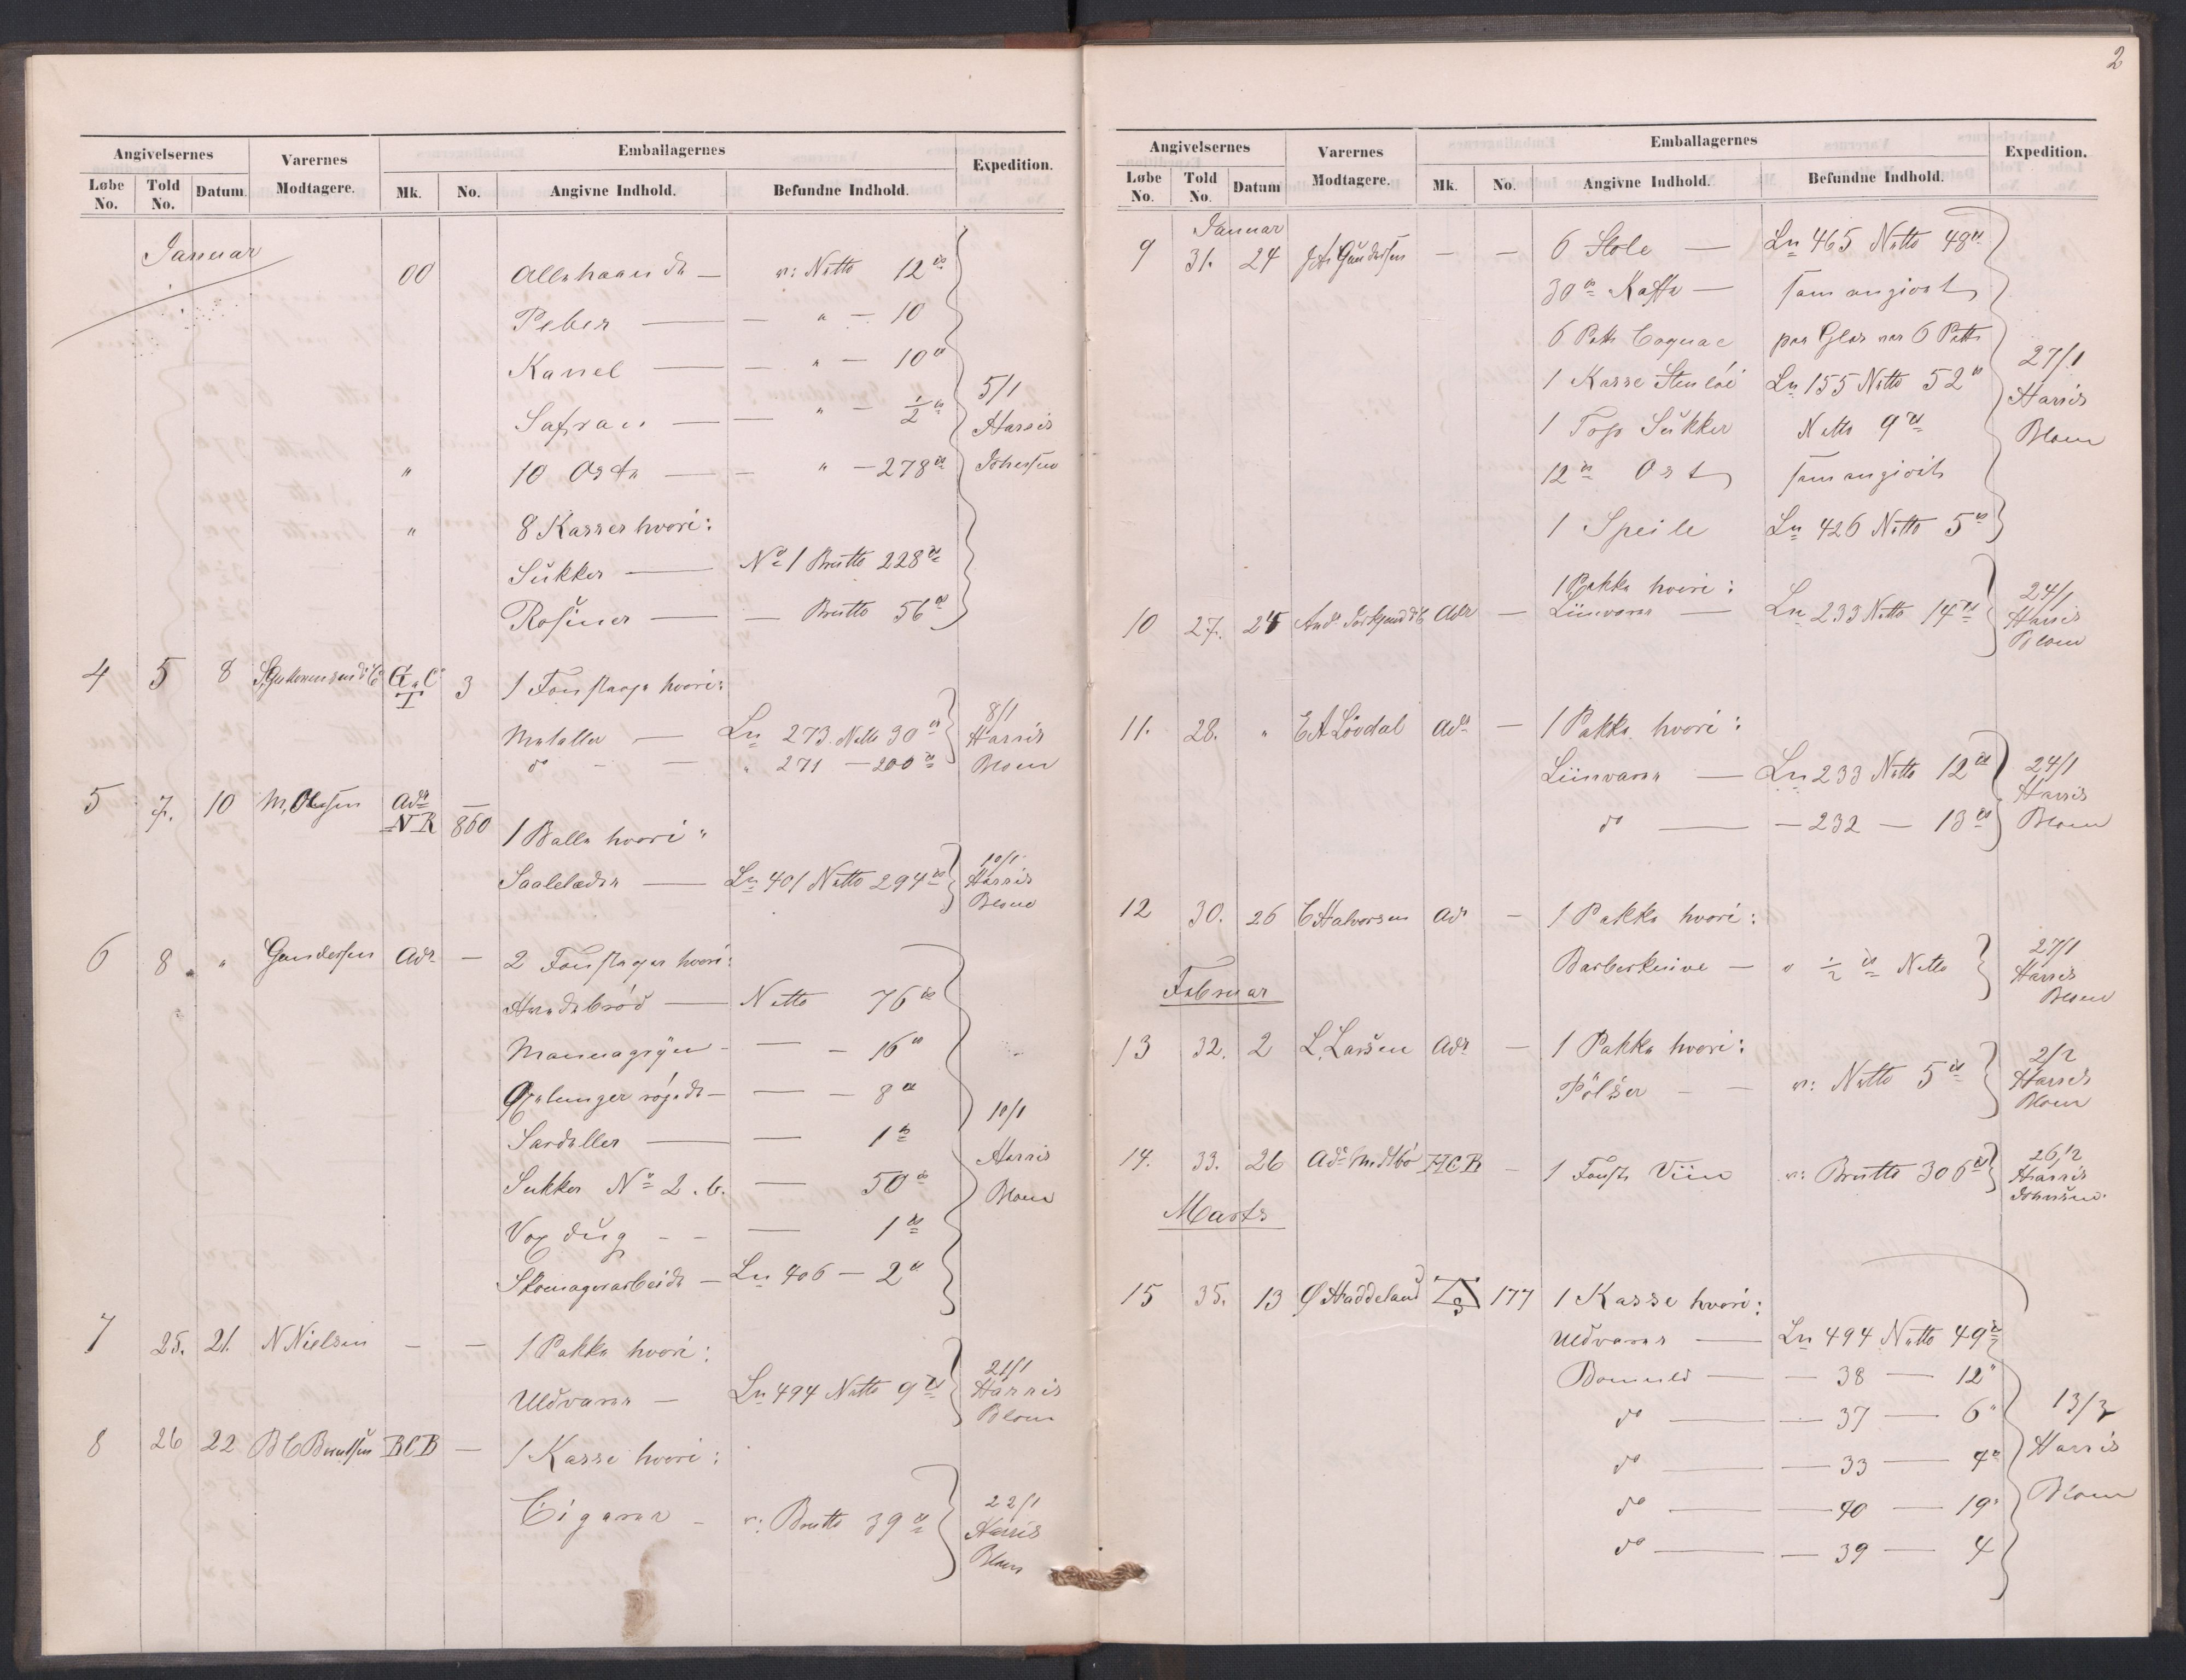 2
Angivelsernes Varernes Modtagere. Emballagernes Expedition.
Løbe No. Told No. Datum. Mk. No. Angivne Indhold. Befundne Indhold.
Januar
00 Allehaande — v: Netto 12 ℔
Peber — — " — 10
Kanel — — " — 10 "
Safran — — " — ½ ℔
5/1
Harris
Johnsen
" 10 Oste — — " — 278 ℔
" 8 Kasser hvori:
Sukker — No 1 Brutto 228 ℔
Rosiner — — Brutto 56 ℔
4 5 8 & Co G & C T 3 1 Foustage hvori:
Metaller — Ln 273. Netto 30 ℔
do - — " 271 — 200 ℔
8/1
Harris
Blom
5 7. 10 M. Olsen Adr —
NR 860 1 Balle hvori "
Saalelæder — Ln 401 Netto 294 ℔
10/1
Harris
Blom
6 8. " Gundersen Adr — 2 Foustager hvori:
Hvedebrød — Netto 76 ℔
Mannagryn - — — 16 "
røgede — — — 8 "
Sardeller — — 1 ℔
Sukker No 2. b. — 50 ℔
Voxdug - - — 1 ℔
Skomagerarbeide — Ln 406 — 2 "
10/1
Harris
Blom
7 25. 21. N Nielsen — — 1 Pakke hvori:
Uldvarer — Ln 494 Netto 9 ℔
21/1
Harris
Blom
8 26 22 B C Bentsen BCB — 1 Kasse hvori:
Cigarer - v: Brutto 39 ℔
22/1
Harris
Blom
Angivelsernes Varernes Modtagere. Emballagernes Expedition.
Løbe No. Told No. Datum Mk. No. Angivne Indhold. Befundne Indhold.
Januar
9 31. 24 Gundersen — — 6 Stole — Ln 465 Netto 48 ℔
30 ℔ Kaffe — som angivet
6 Pott Cognac paa Glas var 6 Pott
1 Kasse Ln 155 Netto 52 ℔
1 Top Sukker Netto 9 ℔
12 ℔ Ost som angivet
1 Speile Ln 426 Netto 5 ℔
27/1
Harris
Blom
1 Pakke hvori:
10 27. 24 And. & C Adr — Liinvarer — Ln 233 Netto 14 ℔
24/1
Harris
Blom
11. 28. " E A Lövdal Adr — 1 Pakke hvori:
Liinvarer — Ln 233 Netto 12 ℔
do — — 232 — 13 ℔
24/1
Harris
Blom
12 30. 26 C Halvorsen Adr — 1 Pakke hvori:
Barberknive — v ½ ℔ Netto
27/1
Harris
Blom
Februar
13 32. 2 L. Larsen Adr — 1 Pakke hvori:
Pölser - — v: Netto 5 ℔
2/2
Harris
Blom
14. 33. 26 HCB — 1 Foust. Viin v: Brutto 306 ℔
26/2
Harris
Johnsen.
Marts
15 35. 13 Ø Haddeland 177 1 Kasse hvori:
Uldvarer — Ln 494 Netto 49 ℔
Bomuld — — 38 — 12 "
do — — 37 — 6 "
do — — 33 — 4 "
do — — 40 — 19 "
do — — 39 — 4
13/3
Harris
Blom